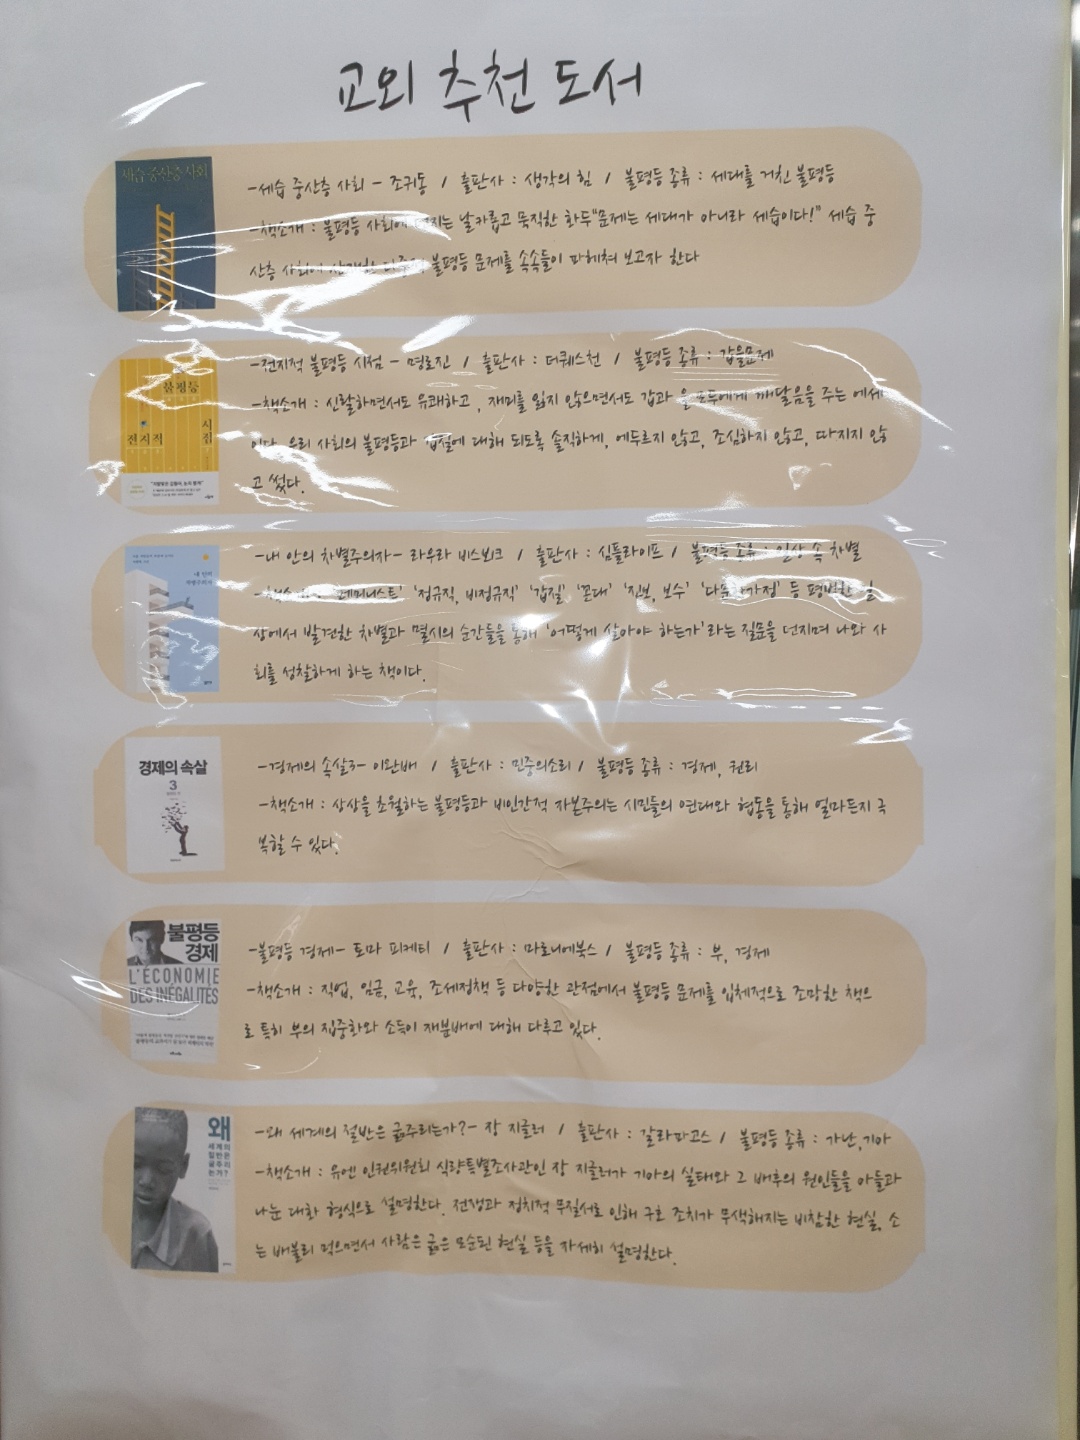 교외 추천 도서
세습중산층사회
-세습 중산층 사회 - 조귀동 / 출판사 : 생각의 힘 / 불평등 종류 : 세대를 거친 불평등
-책소개 : 불평등 사회에 던지는 날카롭고 묵직한 화두"문제는 세대가 아니라 세습이다!" 세습 중
산층 사회에 불평등 문제를 속속들이 파헤쳐 보고자 한다
불평등
전지적
시점
-전지적 불평등 시점 - 명로진 / 출판사 : 더퀘스천 / 불평등 종류 : 갑을문제
-책소개 : 신랄하면서도 유쾌하고, 재미를 잃지 않으면서도 갑과 을 모두에게 깨달음을 주는 에세
이다. 우리 사회의 불평등과 갑질에 대해 되도록 솔직하게, 에두르지 않고, 조심하지 않고, 따지지 않
고 썼다.
내 안의
차별주의자
-내 안의 차별주의자- 라우라 비스뵈크 / 출판사 : 심플라이프 / 불평등 종류 : 일상 속 차별
-책소개 : '페미니스트' '정규직, 비정규직' '갑질' '꼰대' '진보, 보수' '다문화가정' 등 평범한 일
상에서 발견한 차별과 멸시의 순간들을 통해 '어떻게 살아야 하는가'라는 질문을 던지며 나와 사
회를 성찰하게 하는 책이다.
경제의 속살
3
-경제의 속살3- 이완배 / 출판사 : 민중의소리 / 불평등 종류 : 경제, 권리
-책소개 : 상상을 초월하는 불평등과 비인간적 자본주의는 시민들의 연대와 협동을 통해 얼마든지 극
복할 수 있다.
불평등
경제
L'ÉCONOMIE
DES INÉGALITÉS
-불평등 경제- 토마 피케티 / 출판사 : 마로니에북스 / 불평등 종류 : 부, 경제
-책소개 : 직업, 임금, 교육, 조세정책 등 다양한 관점에서 불평등 문제를 입체적으로 조망한 책으
로 특히 부의 집중화와 소득이 재분배에 대해 다루고 있다.
왜
세계의
절반은
굶주리
는가?
-왜 세계의 절반은 굶주리는가?- 장 지글러 / 출판사 : 갈라파고스 / 불평등 종류 : 가난,기아
-책소개 : 유엔 인권위원회 식량특별조사관인 장 지글러가 기아의 실태와 그 배후의 원인들을 아들과
나눈 대화 형식으로 설명한다. 전쟁과 정치적 무질서로 인해 구호 조치가 무색해지는 비참한 현실, 소
는 배불리 먹으면서 사람은 굶은 모순된 현실 등을 자세히 설명한다.